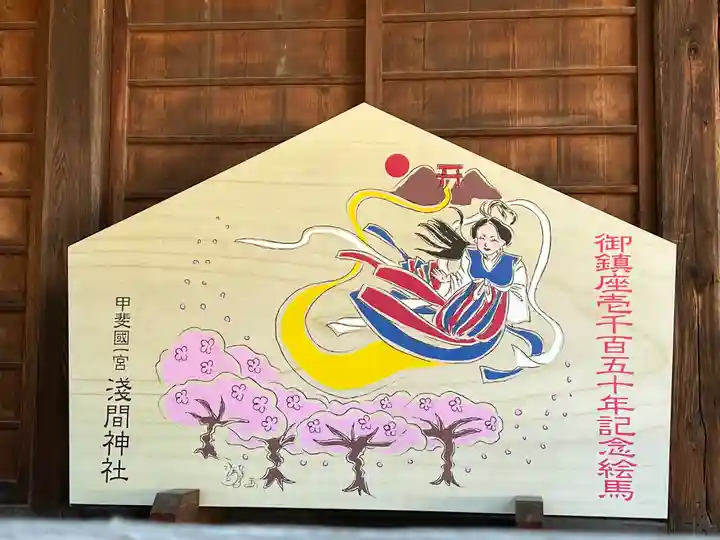 御鎮座壱千百五十年記念絵馬
甲斐國一宮
淺間神社